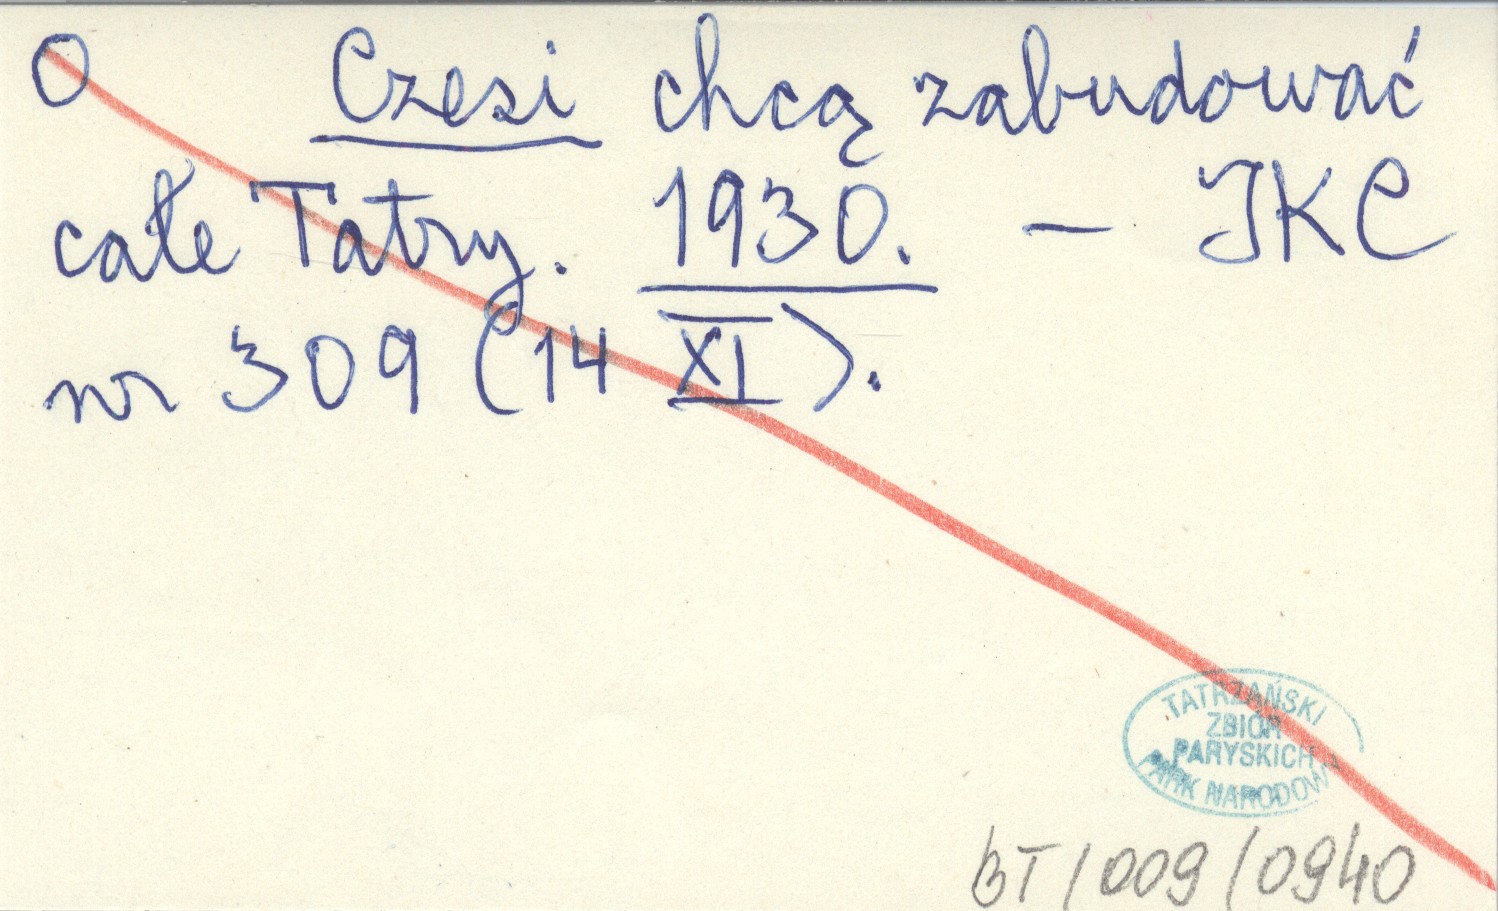 O Czesi chcą zabudować
całe Tatry. 1930. — IKC
nr 309 (14 XI).
TATRZAŃSKI
ZBIÓR
PARYSKICH
PARK NARODOWY
BT/009/0940